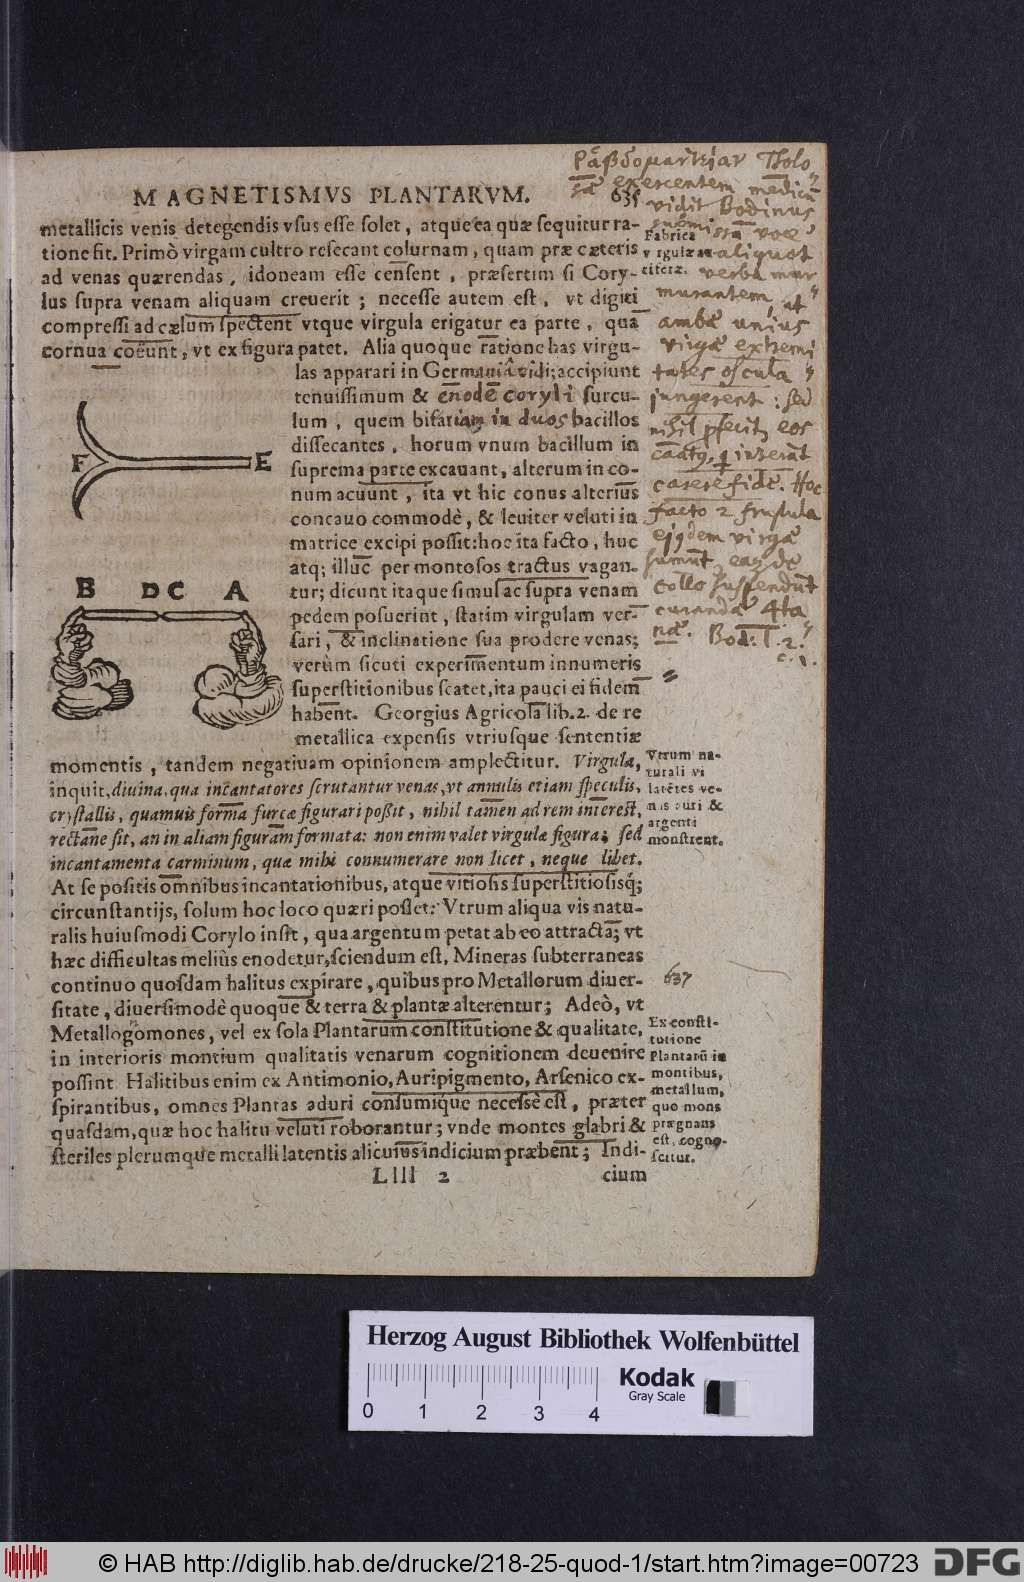 MAGNETISMVS PLANTARVM. 635
metallicis venis detegendis vsus esse solet, atque ea quæ sequitur ra-
tione fit. Primò virgam cultro resecant colurnam, quam præ cæteris
ad venas quærendas, idoneam esse censent, præsertim si Cory-
lus supra venam aliquam creuerit; necesse autem est, vt digiti
compressi ad cælum spectent vtque virgula erigatur ea parte, quâ
cornua coëunt, vt ex figura patet. Alia quoque ratione has virgu-
las apparari in Germaniâ vidi; accipiunt
tenuissimum & enodẽ coryli surcu-
lum, quem bifariam in duos bacillos
dissecantes, horum vnum bacillum in
suprema parte excauant, alterum in co-
num acuunt, ita vt hic conus alterius
concauo commodè, & leuiter veluti in
matrice excipi possit: hoc ita facto, huc
atq; illuc per montosos tractus vagan-
tur; dicunt itaque simul ac supra venam
pedem posuerint, statim virgulam ver-
sari, & inclinatione sua prodere venas;
verùm sicuti experimentum innumeris
superstitionibus scatet, ita pauci ei fidem
habent. Georgius Agricola lib. 2. de re
metallica expensis vtriusque sententiæ
F E
B D C A
momentis, tandem negatiuam opinionem amplectitur. Virgula,
inquit, diuina, qua incantatores scrutantur venas, vt annulis etiam speculis,
crystallis, quamuis forma furcæ figurari possit, nihil tamen ad rem interest,
rectane sit, an in aliam figuram formata: non enim valet virgulæ figura; sed
incantamenta carminum, quæ mihi connumerare non licet, neque libet.
At se positis omnibus incantationibus, atque vitiosis superstitiosisq́;
circunstantijs, solum hoc loco quæri posset: Vtrum aliqua vis natu-
ralis huiusmodi Corylo insit, qua argentum petat ab eo attracta; vt
hæc difficultas meliùs enodetur, sciendum est, Mineras subterraneas
continuo quosdam halitus expirare, quibus pro Metallorum diuer-
sitate, diuersimodè quoque & terra & plantæ alterentur; Adeò, vt
Metallogomones, vel ex sola Plantarum constitutione & qualitate,
in interioris montium qualitatis venarum cognitionem deuenire
possint. Halitibus enim ex Antimonio, Auripigmento, Arsenico ex-
spirantibus, omnes Plantas aduri consumique necesse est, præter
quasdam, quæ hoc halitu veluti roborantur; vnde montes glabri &
steriles plerumque metalli latentis alicuius indicium præbent; Indi-
Llll 2 cium
Fabrica
virgulæ au-
riferæ.
Vtrum na-
turali vi
latẽtes ve-
nas auri &
argenti
monstrent.
Ex consti-
tutione
Plantarũ in
montibus,
metallum,
quo mons
prægnans
est, cogno-
scitur.
Ραβδομαντείαν Tholo
sæ exercentem medicũ
vidit Bodinus
submissâ voce
aliquot
verba mur
murantem, ut
ambæ unius
virgæ extremi
tates oscula
jungerent: sed
nihil
carere fidê. Hoc
facto 2 frustula
ejusdem virgæ
sumunt, easq; de
collo suspendunt
curandæ 4ta
næ. Bod: l. 2.
c. 1.
637
Herzog August Bibliothek Wolfenbüttel
0 1 2 3 4
Kodak
Gray Scale
© HAB http://diglib.hab.de/drucke/218-25-quod-1/start.htm?image=00723
DFG